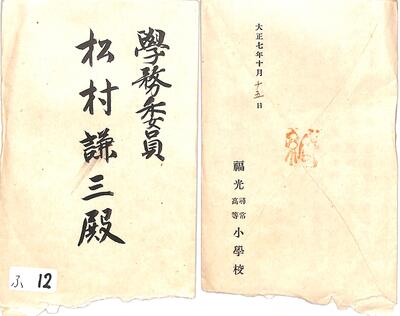 學務委員
松村謙三殿
ふ 12
大正七年十月十五日
福光尋常高等小學校